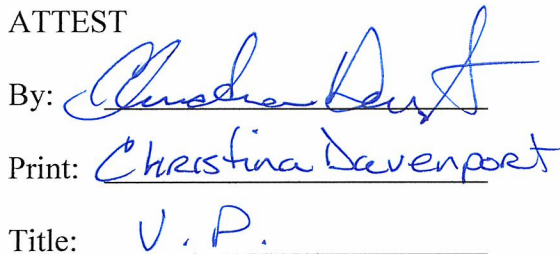 ATTEST
By: Christina Davenport
Print: Christina Davenport
Title: V.P.